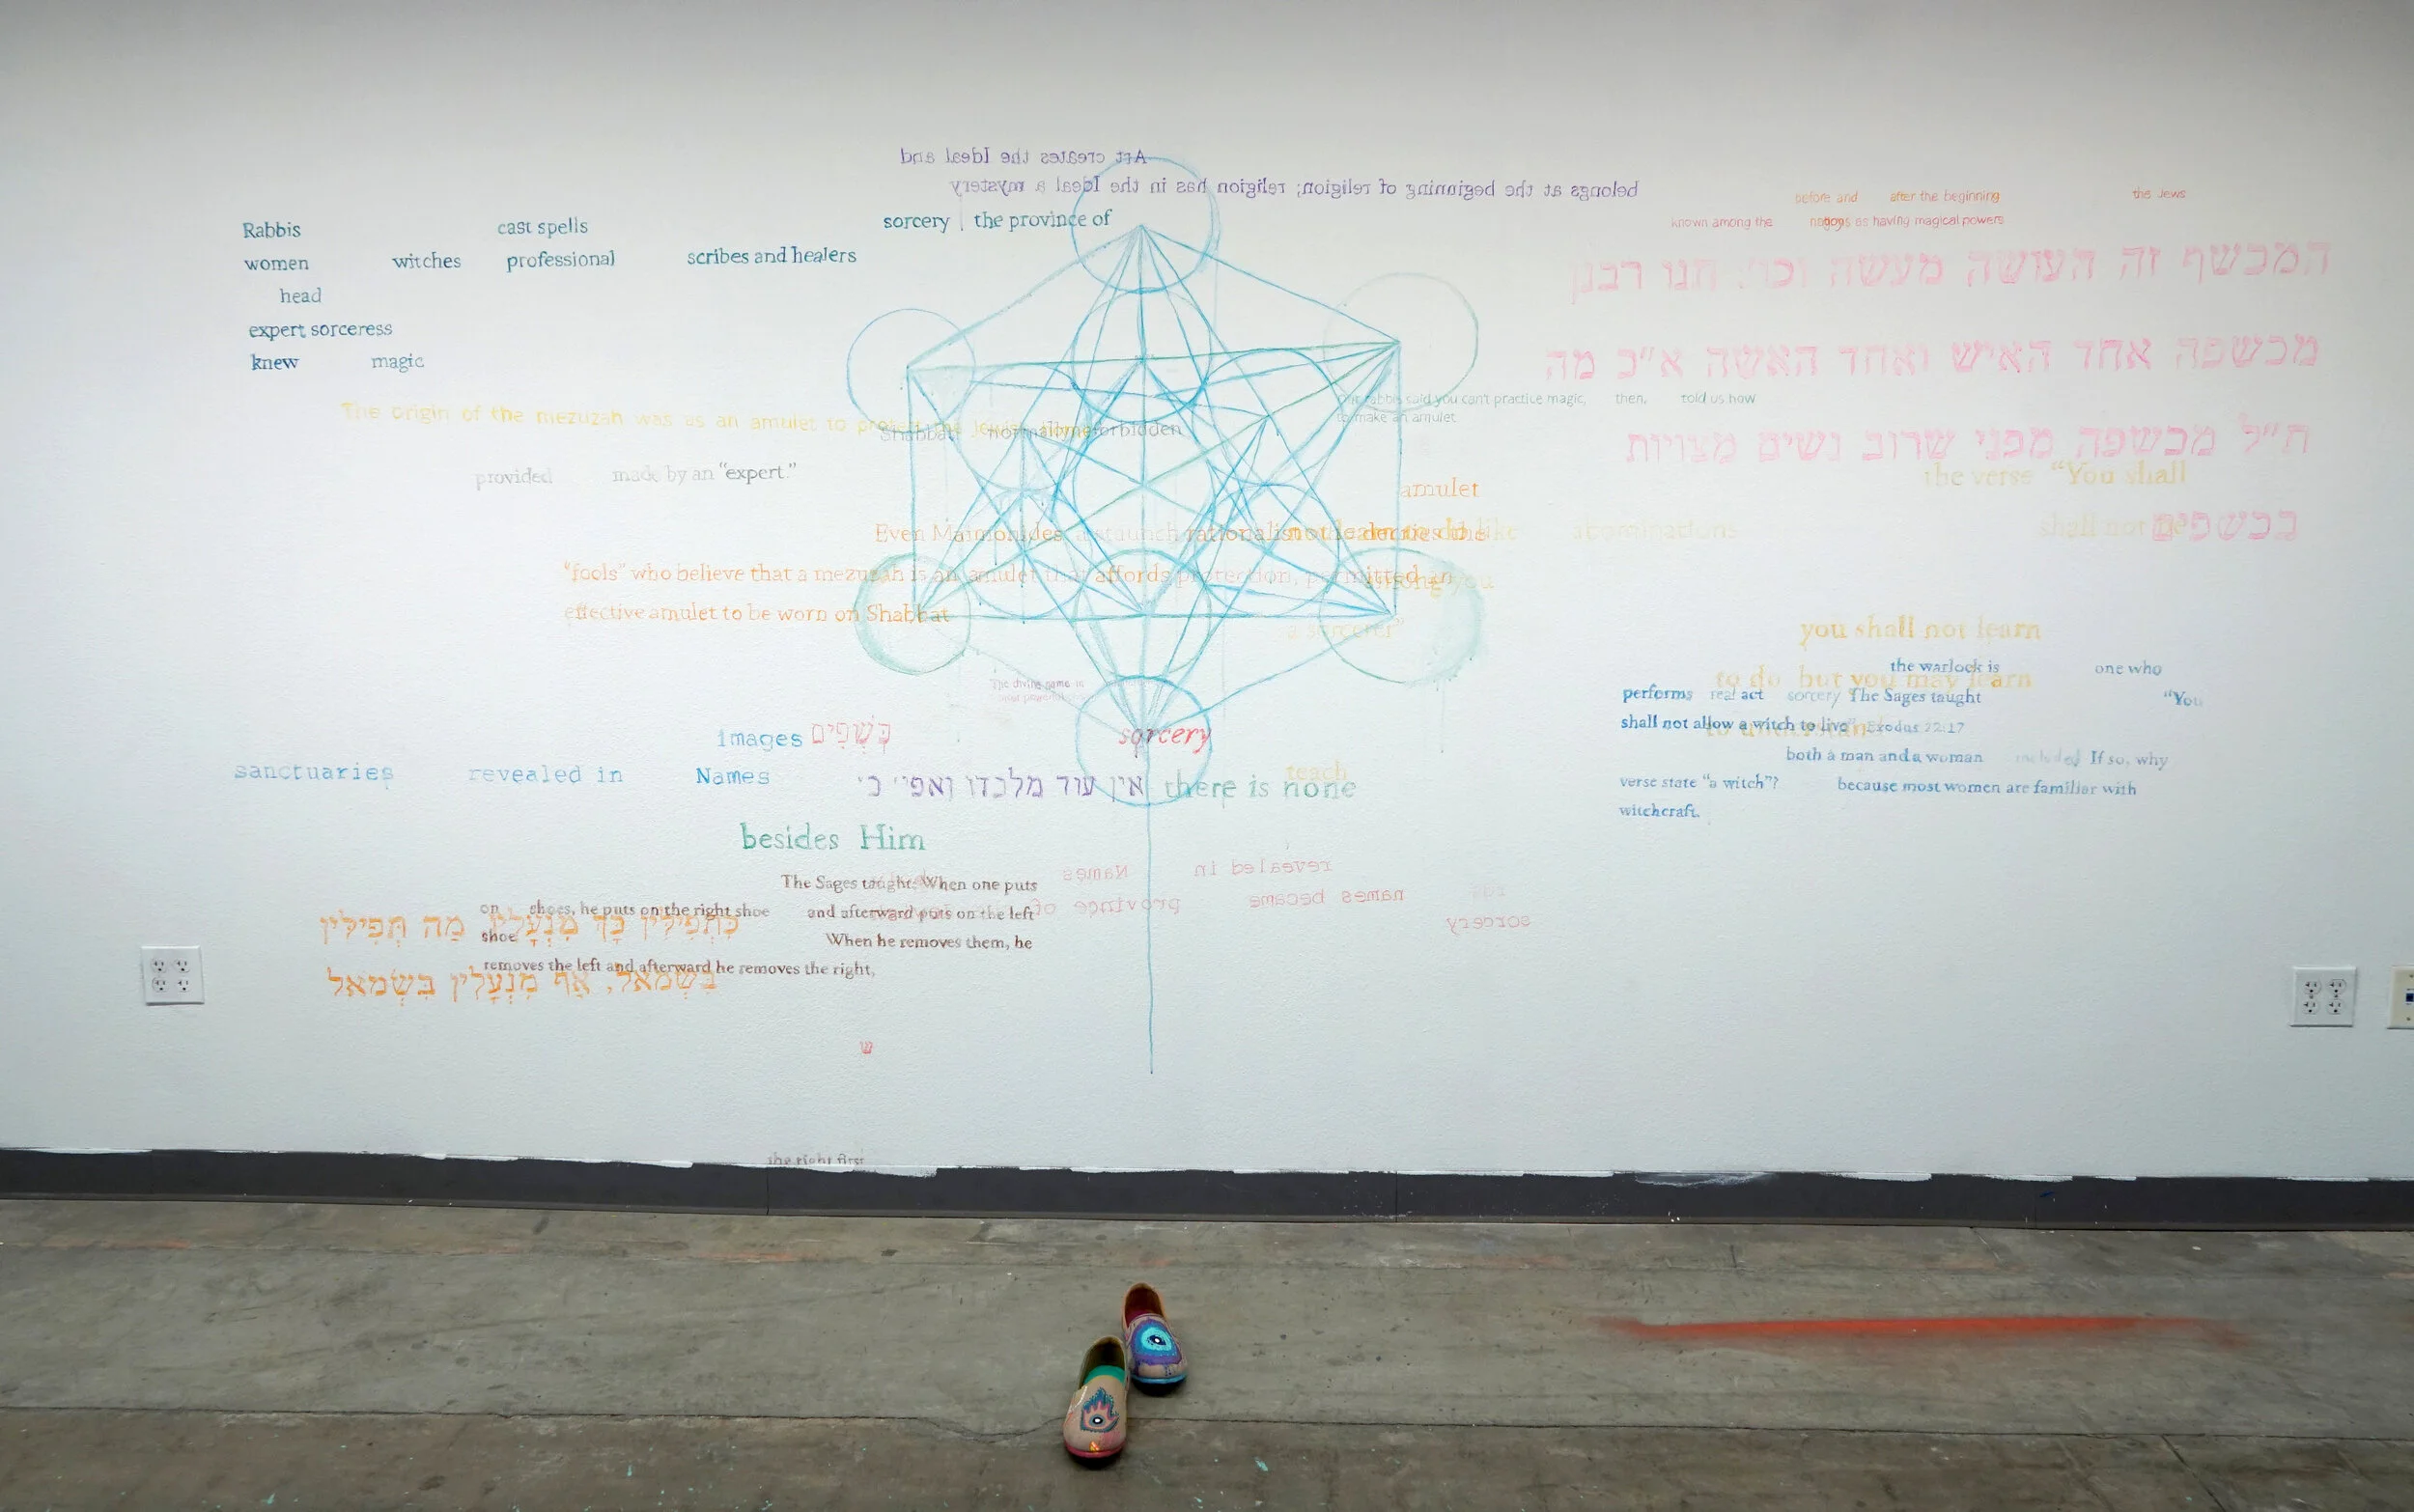 Art creates the Ideal and
belongs at the beginning of religion; religion has in the Ideal a mystery
Rabbis cast spells sorcery the province of
women witches professional scribes and healers
head
expert sorceress
knew magic
before and after the beginning the Jews
known among the as having magical powers
המכשף זה העושה מעשה וכו׳. תנו רבנן
מכשפה אחד האיש ואחד האשה א"כ מה
ת"ל מכשפה מפני שרוב נשים מצויות
בכשפים
The origin of the mezuzah was as an amulet to protect the
Shabbat normally forbidden
provided made by an "expert."
Our rabbis said you can't practice magic, then, told us how
to make an amulet
amulet
Even Maimonides, a staunch rationalist
"fools" who believe that a mezuzah is an amulet that affords protection, permitted an
effective amulet to be worn on Shabbat
the verse "You shall
not learn to do like abominations
shall not be
among you
a sorcerer"
you shall not learn
to do but you may learn
teach
The divine name is
images כְּשָׁפִים
sanctuaries revealed in Names
sorcery
אין עוד מלבדו ואפי׳ כ׳ there is none
besides Him
the warlock is one who
performs real act sorcery The Sages taught "You
shall not allow a witch to live" Exodus 22:17
both a man and a woman included If so, why
verse state "a witch"? because most women are familiar with
witchcraft.
revealed in Names
names became province of
sorcery
The Sages taught: When one puts
on shoes, he puts on the right shoe and afterward puts on the left
shoe When he removes them, he
removes the left and afterward he removes the right,
כִּתְפִילִּין כָּךְ מִנְעָלִין מַה תְּפִילִּין
בִּשְׂמֹאל, אַף מִנְעָלִין בִּשְׂמֹאל
ש
the right first